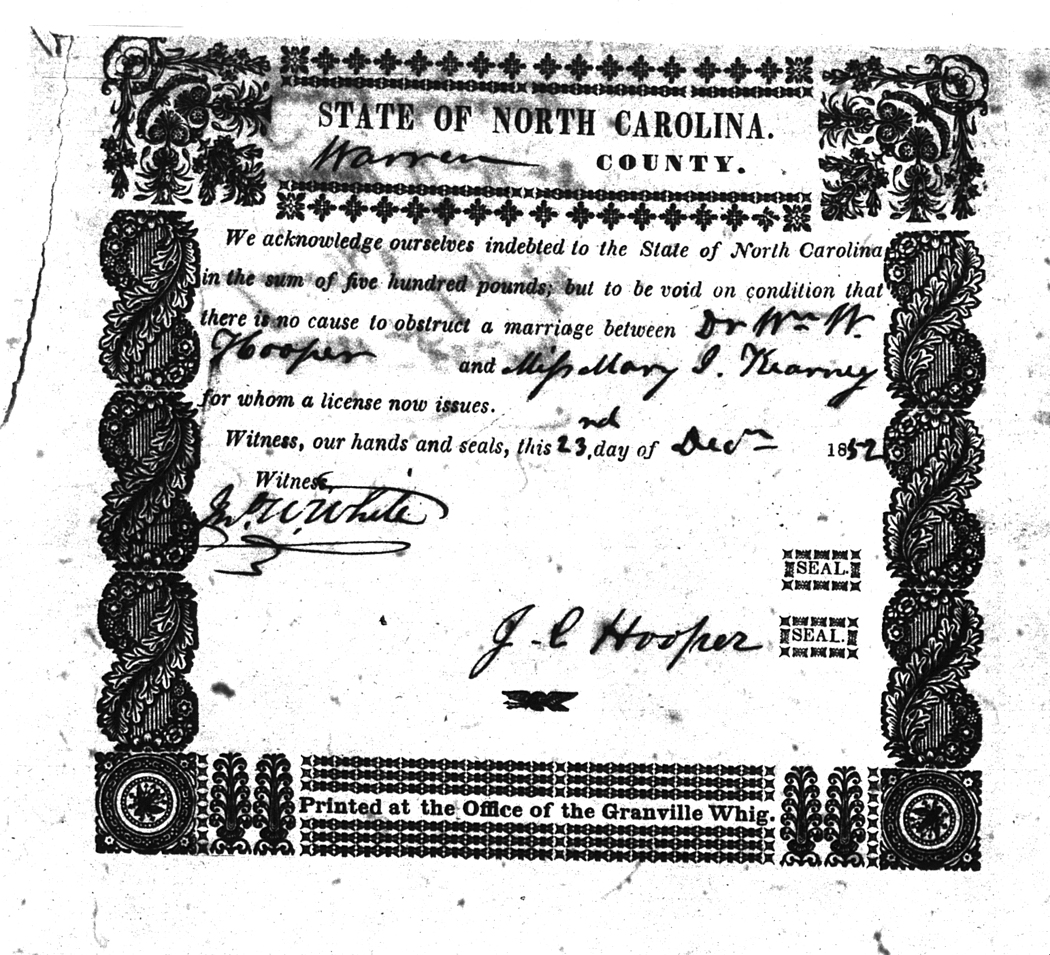 STATE OF NORTH CAROLINA.
Warren COUNTY.
We acknowledge ourselves indebted to the State of North Carolina
in the sum of five hundred pounds; but to be void on condition that
there is no cause to obstruct a marriage between Dr Wm W
Hooper and Miss Mary J. Kearney
for whom a license now issues.
Witness, our hands and seals, this 23nd, day of Decm 1852
Witness,
Jno. W. White
SEAL.
J. C Hooper SEAL.
Printed at the Office of the Granville Whig.